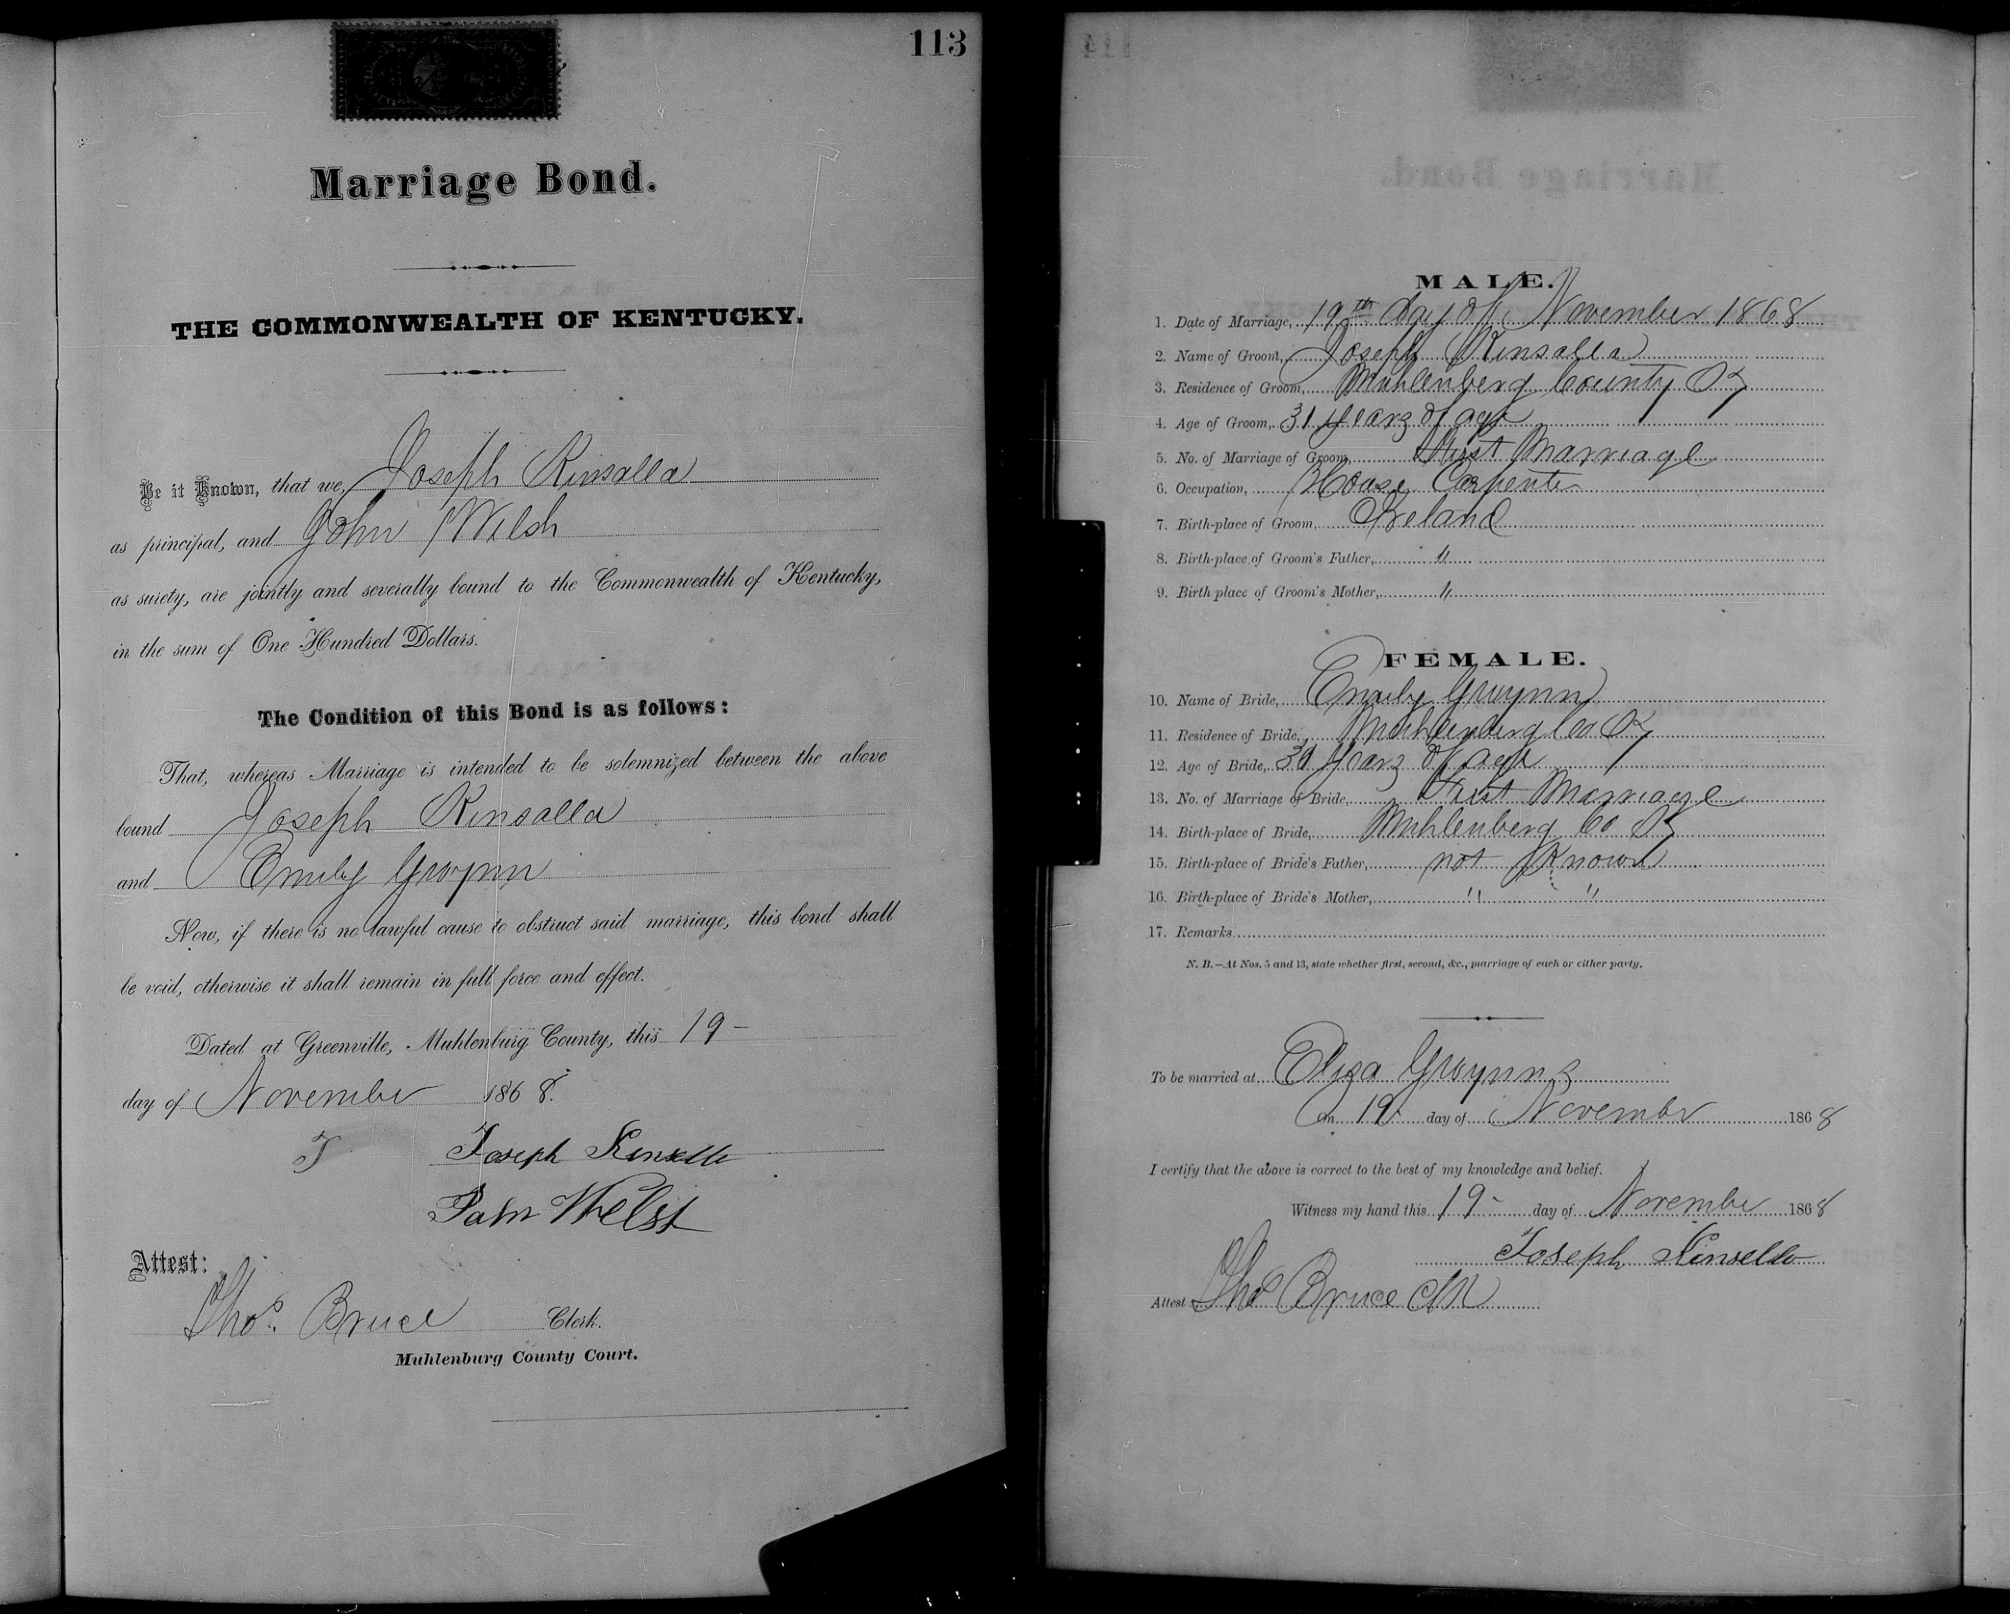 113
Marriage Bond.
THE COMMONWEALTH OF KENTUCKY.
Be it Known, that we, Joseph Kinsalla
as principal, and John Welsh
as surety, are jointly and severally bound to the Commonwealth of Kentucky,
in the sum of One Hundred Dollars.
The Condition of this Bond is as follows:
That, whereas Marriage is intended to be solemnized between the above
bound Joseph Kinsalla
and Emily Gwynn
Now, if there is no lawful cause to obstruct said marriage, this bond shall
be void, otherwise it shall remain in full force and effect.
Dated at Greenville, Muhlenburg County, this 19-
day of November 1868.
J Joseph Kinsella
John Welsh
Attest:
Thos. Bruce Clerk.
Muhlenburg County Court.
MALE.
1. Date of Marriage, 19th day of November 1868
2. Name of Groom, Joseph Kinsalla
3. Residence of Groom, Muhlenberg County Ky
4. Age of Groom, 31 years of age
5. No. of Marriage of Groom, First Marriage
6. Occupation, House Carpenter
7. Birth-place of Groom, Ireland
8. Birth-place of Groom's Father, "
9. Birth-place of Groom's Mother, "
FEMALE.
10. Name of Bride, Emily Gwynn
11. Residence of Bride, Muhlenberg Co Ky
12. Age of Bride, years of age
13. No. of Marriage of Bride, First Marriage
14. Birth-place of Bride, Muhlenberg Co Ky
15. Birth-place of Bride's Father, not Known
16. Birth-place of Bride's Mother, " "
17. Remarks
N. B.—At Nos. 5 and 13, state whether first, second, &c., marriage of each or either party.
To be married at Eliza Gwynns
on 19 day of November 1868
I certify that the above is correct to the best of my knowledge and belief.
Witness my hand this 19- day of November 1868
Joseph Kinsella
Attest Thos Bruce Clk